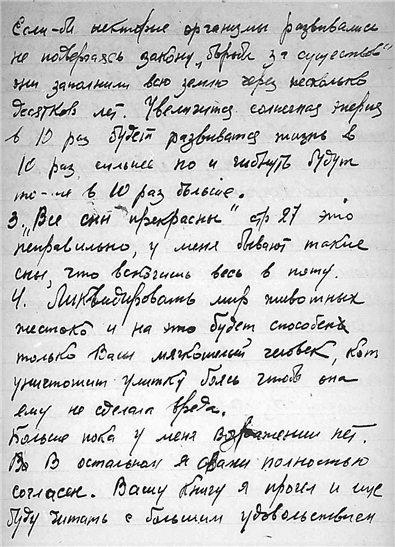 Если-бы некоторые организмы развивались
не подвергаясь закону „борьбы за существов"
они заполнили всю землю через несколько
десятков лет. Увеличится солнечная энергия
в 10 раз будет развиватся жизнь в
10 раз сильнее но и гибнуть будут
то-же в 10 раз больше.
3 „Все сны прекрасны" стр 27 это
неправильно, у меня бывают такие
сны, что вскочишь весь в поту.
4. Ликвидировать мир животных
жестоко и на это будет способен
только Ваш мягкотелый человек, кот
уничтожит улитку боясь чтобы она
ему не сделала вреда.
Больше пока у меня возражений нет.
Во В остальном я с вами полностью
согласен. Вашу книгу я прочел и еще
буду читать с большим удовольствием